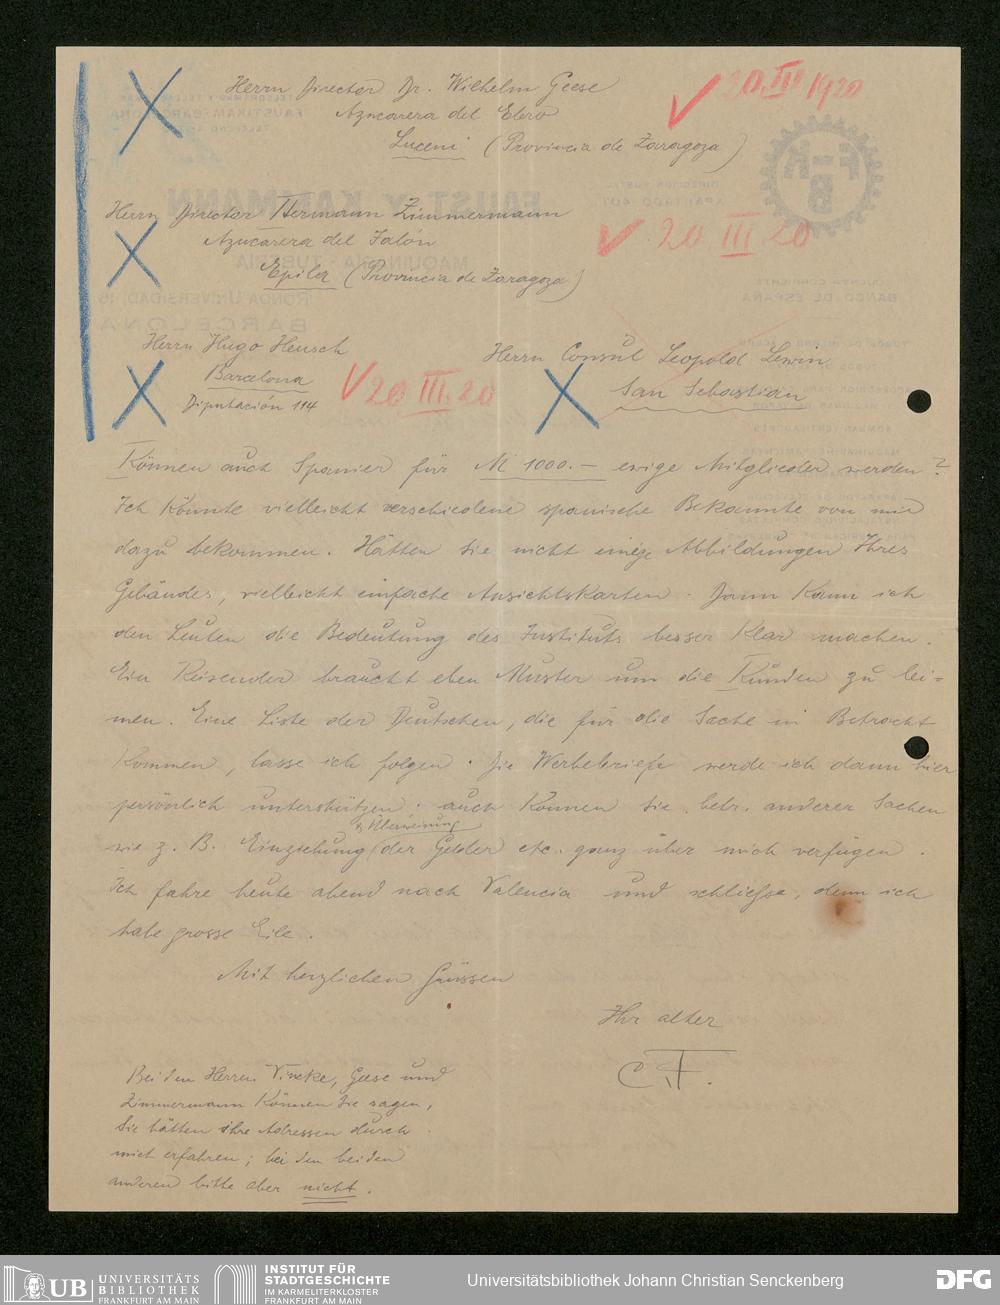 Herrn Director Dr. Wilhelm Geese
20. III 1920
Azucarera del Ebro
Luceni (Provincia de Zaragoza)
Herrn Director Hermann Zimmermann
20 III 20
Azucarera del Jalón
Epila (Provincia de Zaragoza)
Herrn Hugo Heusch
Barcelona
Diputación 114
20 III. 20
Herrn Consul Leopold Lewin
San Sebastian
Können auch Spanier für M 1000.- ewige Mitglieder werden?
Ich könnte vielleicht verschiedene spanische Bekannte von mir
dazu bekommen. Hätten Sie nicht einige Abbildungen Ihres
Gebäudes, vielleicht einfache Ansichtskarten. Dann kann ich
den Leuten die Bedeutung des Instituts besser klar machen.
Ein Reisender braucht eben Muster um die Kunden zu lei-
men. Eine Liste der Deutschen, die für die Sache in Betracht
kommen, lasse ich folgen. Die Werbebriefe werde ich dann hier
persönlich unterstützen; auch können Sie betr. anderer Sachen
wie z. B. Einziehung & Überweisung der Gelder etc. ganz über mich verfügen.
Ich fahre heute abend nach Valencia und schliesse, denn ich
habe grosse Eile.
Mit herzlichen Grüssen
Ihr alter
C. F.
Bei den Herren Vincke, Geese und
Zimmermann können Sie sagen,
Sie hätten ihre Adressen durch
mich erfahren; bei den beiden
anderen bitte aber nicht.
UB
UNIVERSITÄTS
BIBLIOTHEK
FRANKFURT AM MAIN
INSTITUT FÜR
STADTGESCHICHTE
IM KARMELITERKLOSTER
FRANKFURT AM MAIN
Universitätsbibliothek Johann Christian Senckenberg
DFG